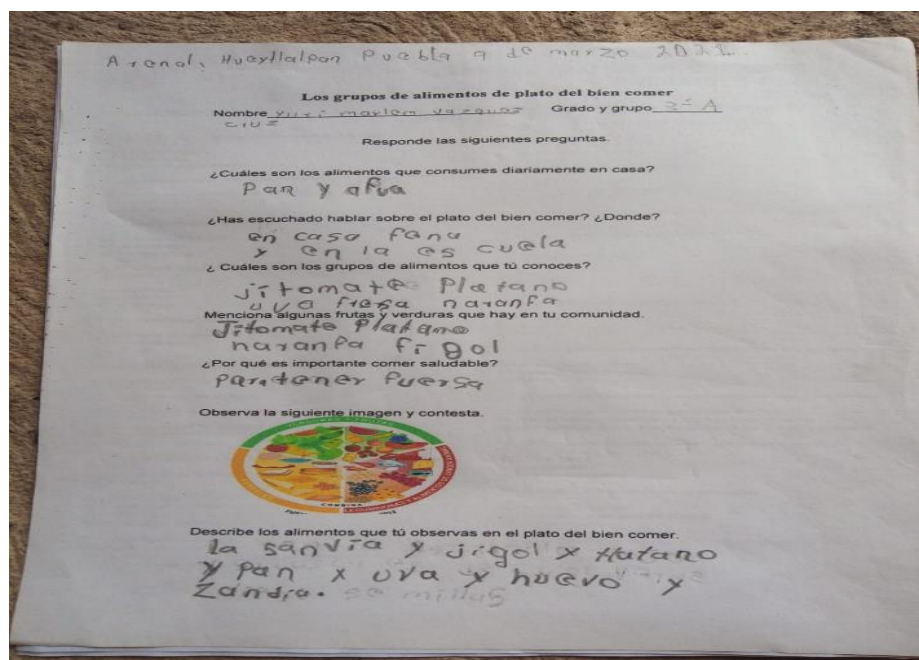 Arenal, Hueytlalpan Puebla 9 de marzo 2021.
Los grupos de alimentos de plato del bien comer
Nombre yuri marlem vazquez Grado y grupo 3º A
cruz
Responde las siguientes preguntas.
¿Cuáles son los alimentos que consumes diariamente en casa?
Pan y afua
¿Has escuchado hablar sobre el plato del bien comer? ¿Donde?
en casa fana
y en la es cuela
¿ Cuáles son los grupos de alimentos que tú conoces?
jitomate Platano
uva fresa naranfa
Menciona algunas frutas y verduras que hay en tu comunidad.
Jitomate Platano
naranfa figol
¿Por qué es importante comer saludable?
para tener fuersa
Observa la siguiente imagen y contesta.
Describe los alimentos que tú observas en el plato del bien comer.
la sanvia y jigol x
y pan x uva y huevo y
Zandia. se millas